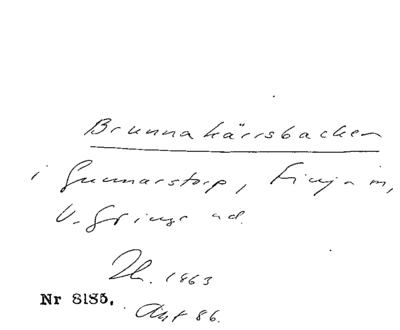 Brunnakärrsbacken
i Gunnarstorp, Finja sn,
V. Göinge hd.
Th. 1863
Nr 8185.
Ant 86.